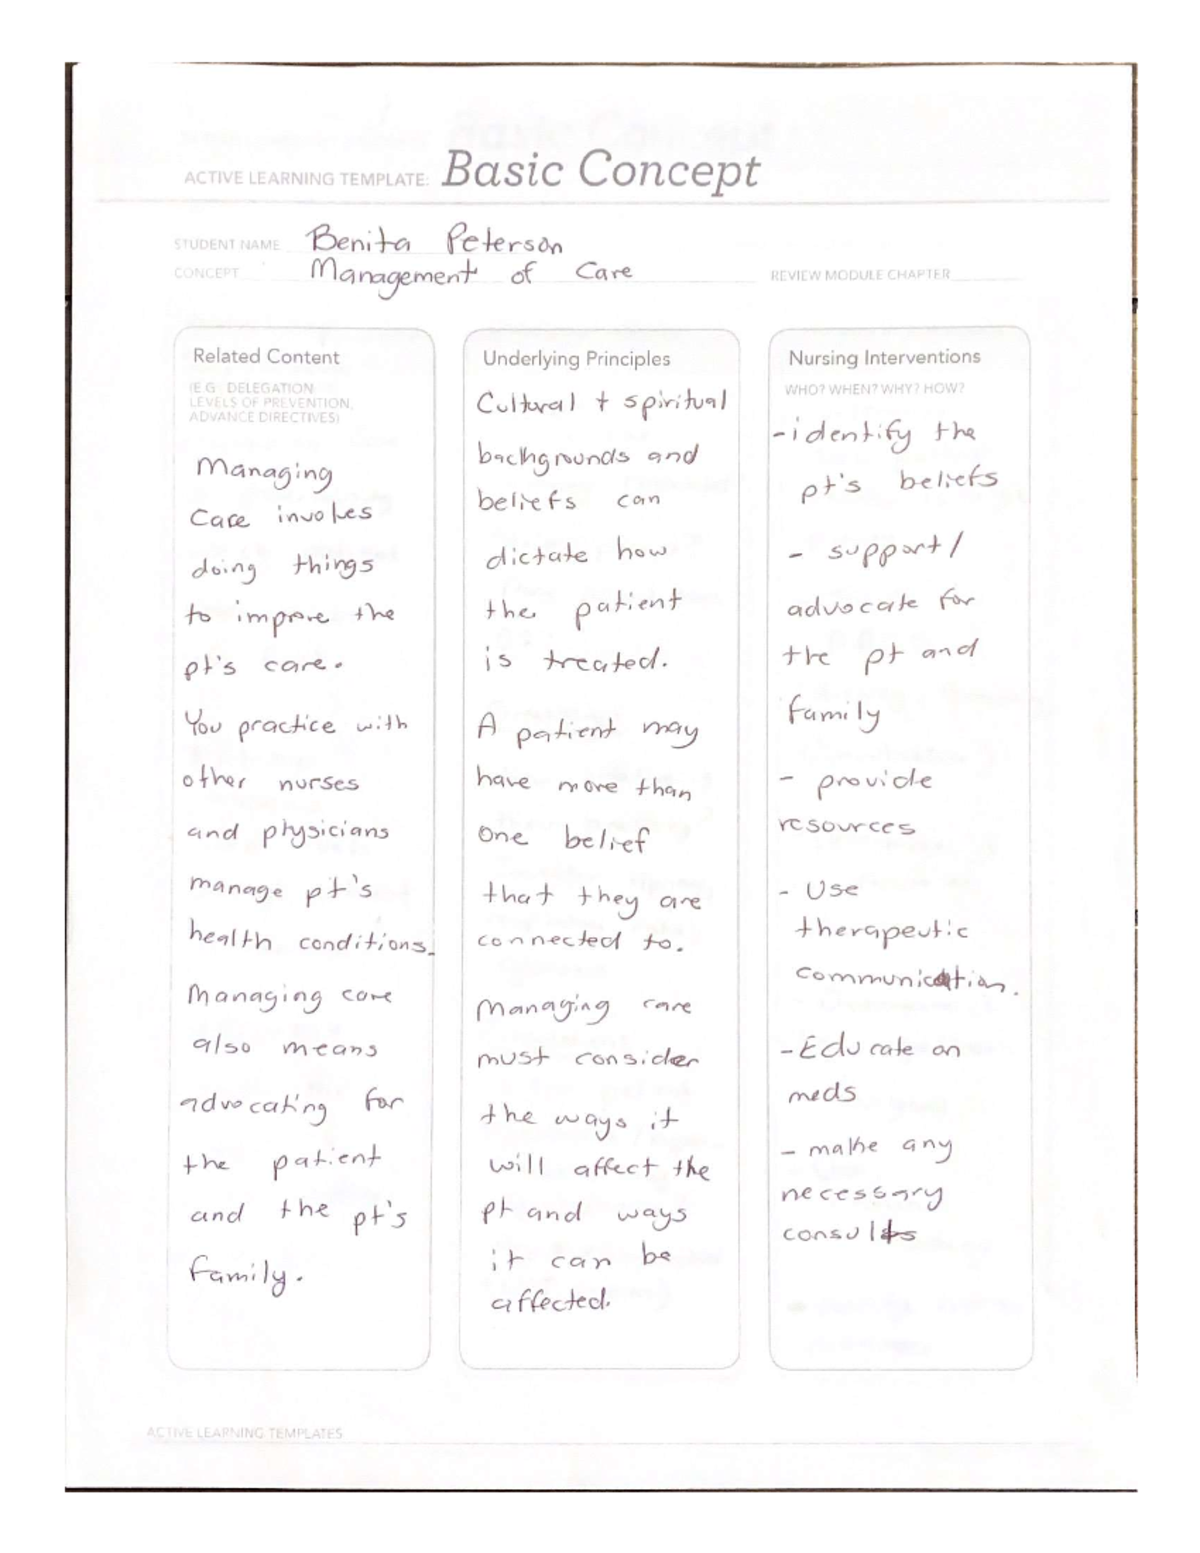 ACTIVE LEARNING TEMPLATE: Basic Concept
STUDENT NAME Benita Peterson
CONCEPT Management of Care
REVIEW MODULE CHAPTER
Related Content
(E.G. DELEGATION
LEVELS OF PREVENTION,
ADVANCE DIRECTIVES)
Managing
Care involves
doing things
to improve the
pt's care.
You practice with
other nurses
and physicians
manage pt's
health conditions.
Managing care
also means
advocating for
the patient
and the pt's
family.
Underlying Principles
Cultural + spiritual
backgrounds and
beliefs can
dictate how
the patient
is treated.
A patient may
have more than
one belief
that they are
connected to.
Managing care
must consider
the ways it
will affect the
pt and ways
it can be
affected.
Nursing Interventions
WHO? WHEN? WHY? HOW?
-identify the
pt's beliefs
- support/
advocate for
the pt and
family
- provide
resources
- Use
therapeutic
communication.
-Educate on
meds
- make any
necessary
consults
ACTIVE LEARNING TEMPLATES